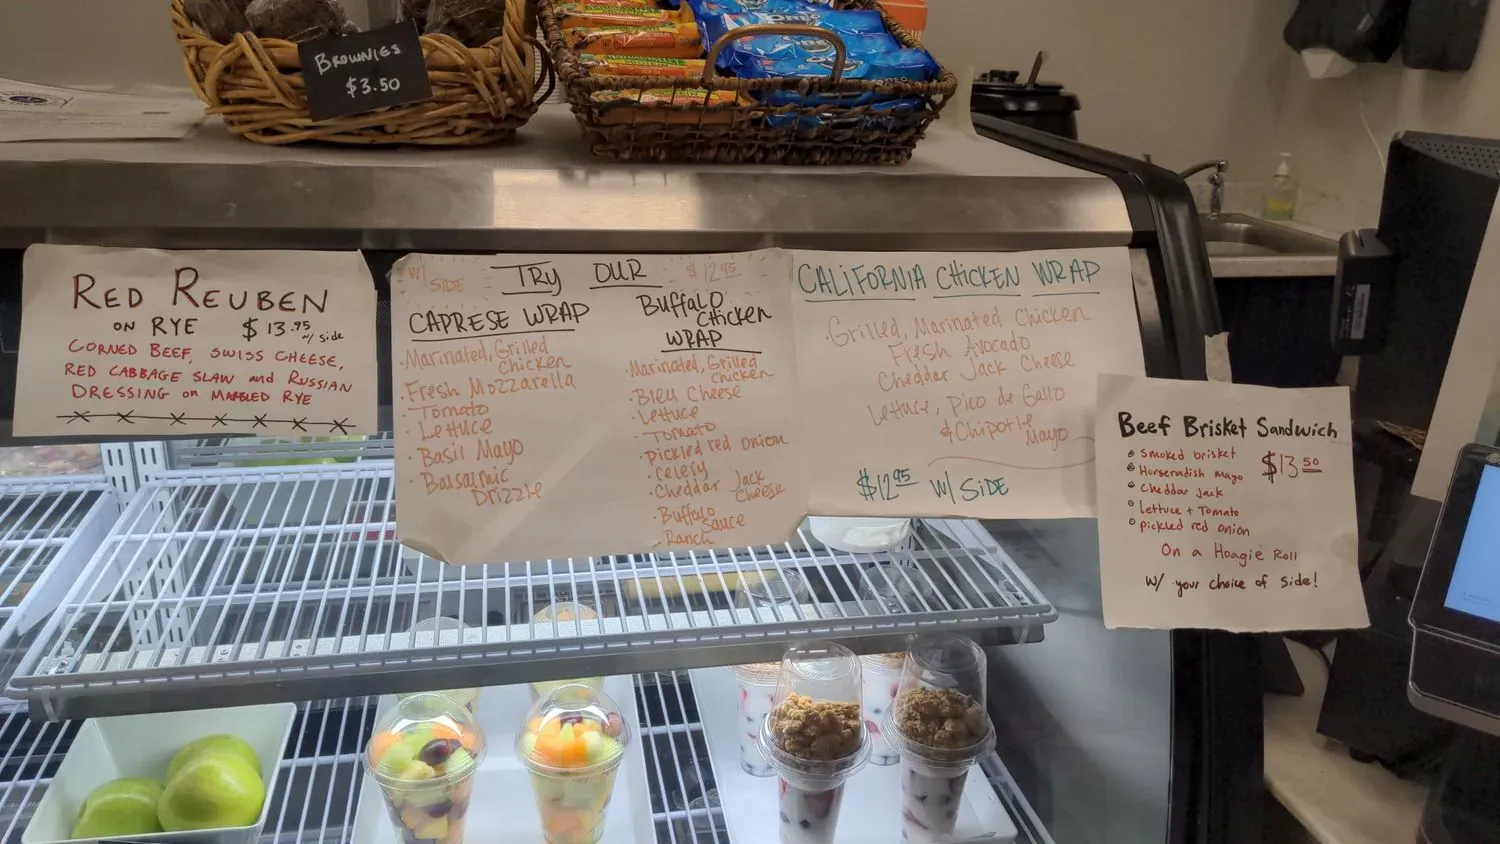 BROWNIES
$3.50
OREO
RED REUBEN
ON RYE $13.95 w/ side
CORNED BEEF, SWISS CHEESE,
RED CABBAGE SLAW and RUSSIAN
DRESSING on MARBLED RYE
W/ SIDE
TRY OUR
$12.95
CAPRESE WRAP
·Marinated, Grilled
Chicken
·Fresh Mozzarella
·Tomato
·Lettuce
·Basil Mayo
·Balsalmic
Drizzle
Buffalo
Chicken
WRAP
·Marinated, Grilled
Chicken
·Bleu Cheese
·Lettuce
·Tomato
·pickled red onion
·celery
·Cheddar Jack
Cheese
·Buffalo
Sauce
·Ranch
CALIFORNIA CHICKEN WRAP
Grilled, Marinated Chicken
Fresh Avocado
Cheddar Jack Cheese
Lettuce, Pico de Gallo
& Chipotle
Mayo
$12.95 W/ SIDE
Beef Brisket Sandwich
smoked brisket
Horseradish mayo
Cheddar jack
lettuce + Tomato
pickled red onion
$13.50
On a Hoagie Roll
w/ your choice of side!